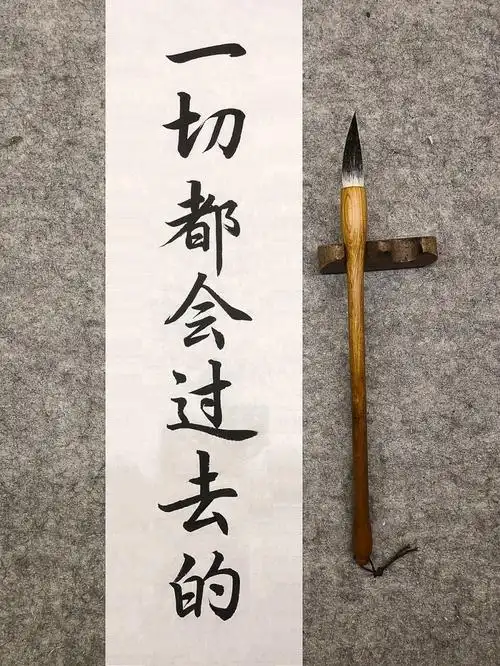 一切都会过去的